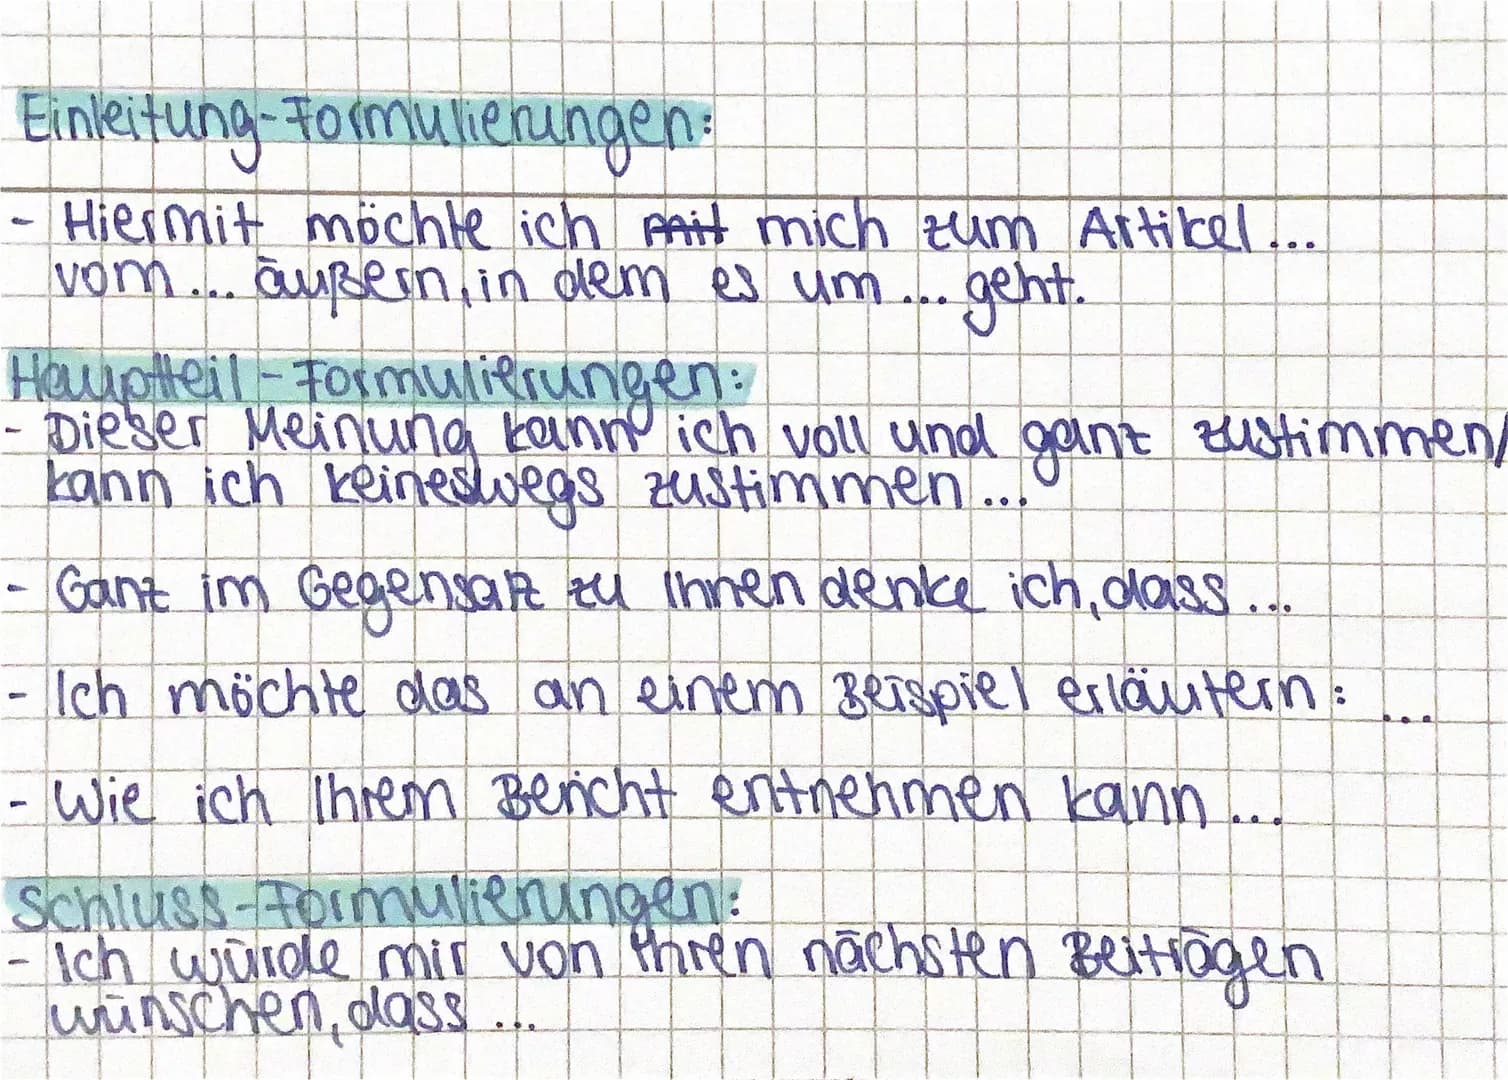 Einleitung-Formulierungen:
- Hiermit möchte ich mit mich zum Artikel...
vom... äußern, in dem es um ... geht.
Hauptteil-Formulierungen:
- Dieser Meinung kann ich voll und ganz zustimmen/
kann ich keineswegs zustimmen...
- Ganz im Gegensatz zu Ihnen denke ich, dass ...
- Ich möchte das an einem Beispiel erläutern: ...
- Wie ich Ihrem Bericht entnehmen kann ...
Schluss-Formulierungen:
- Ich würde mir von Ihren nächsten Beiträgen
wünschen, dass ...